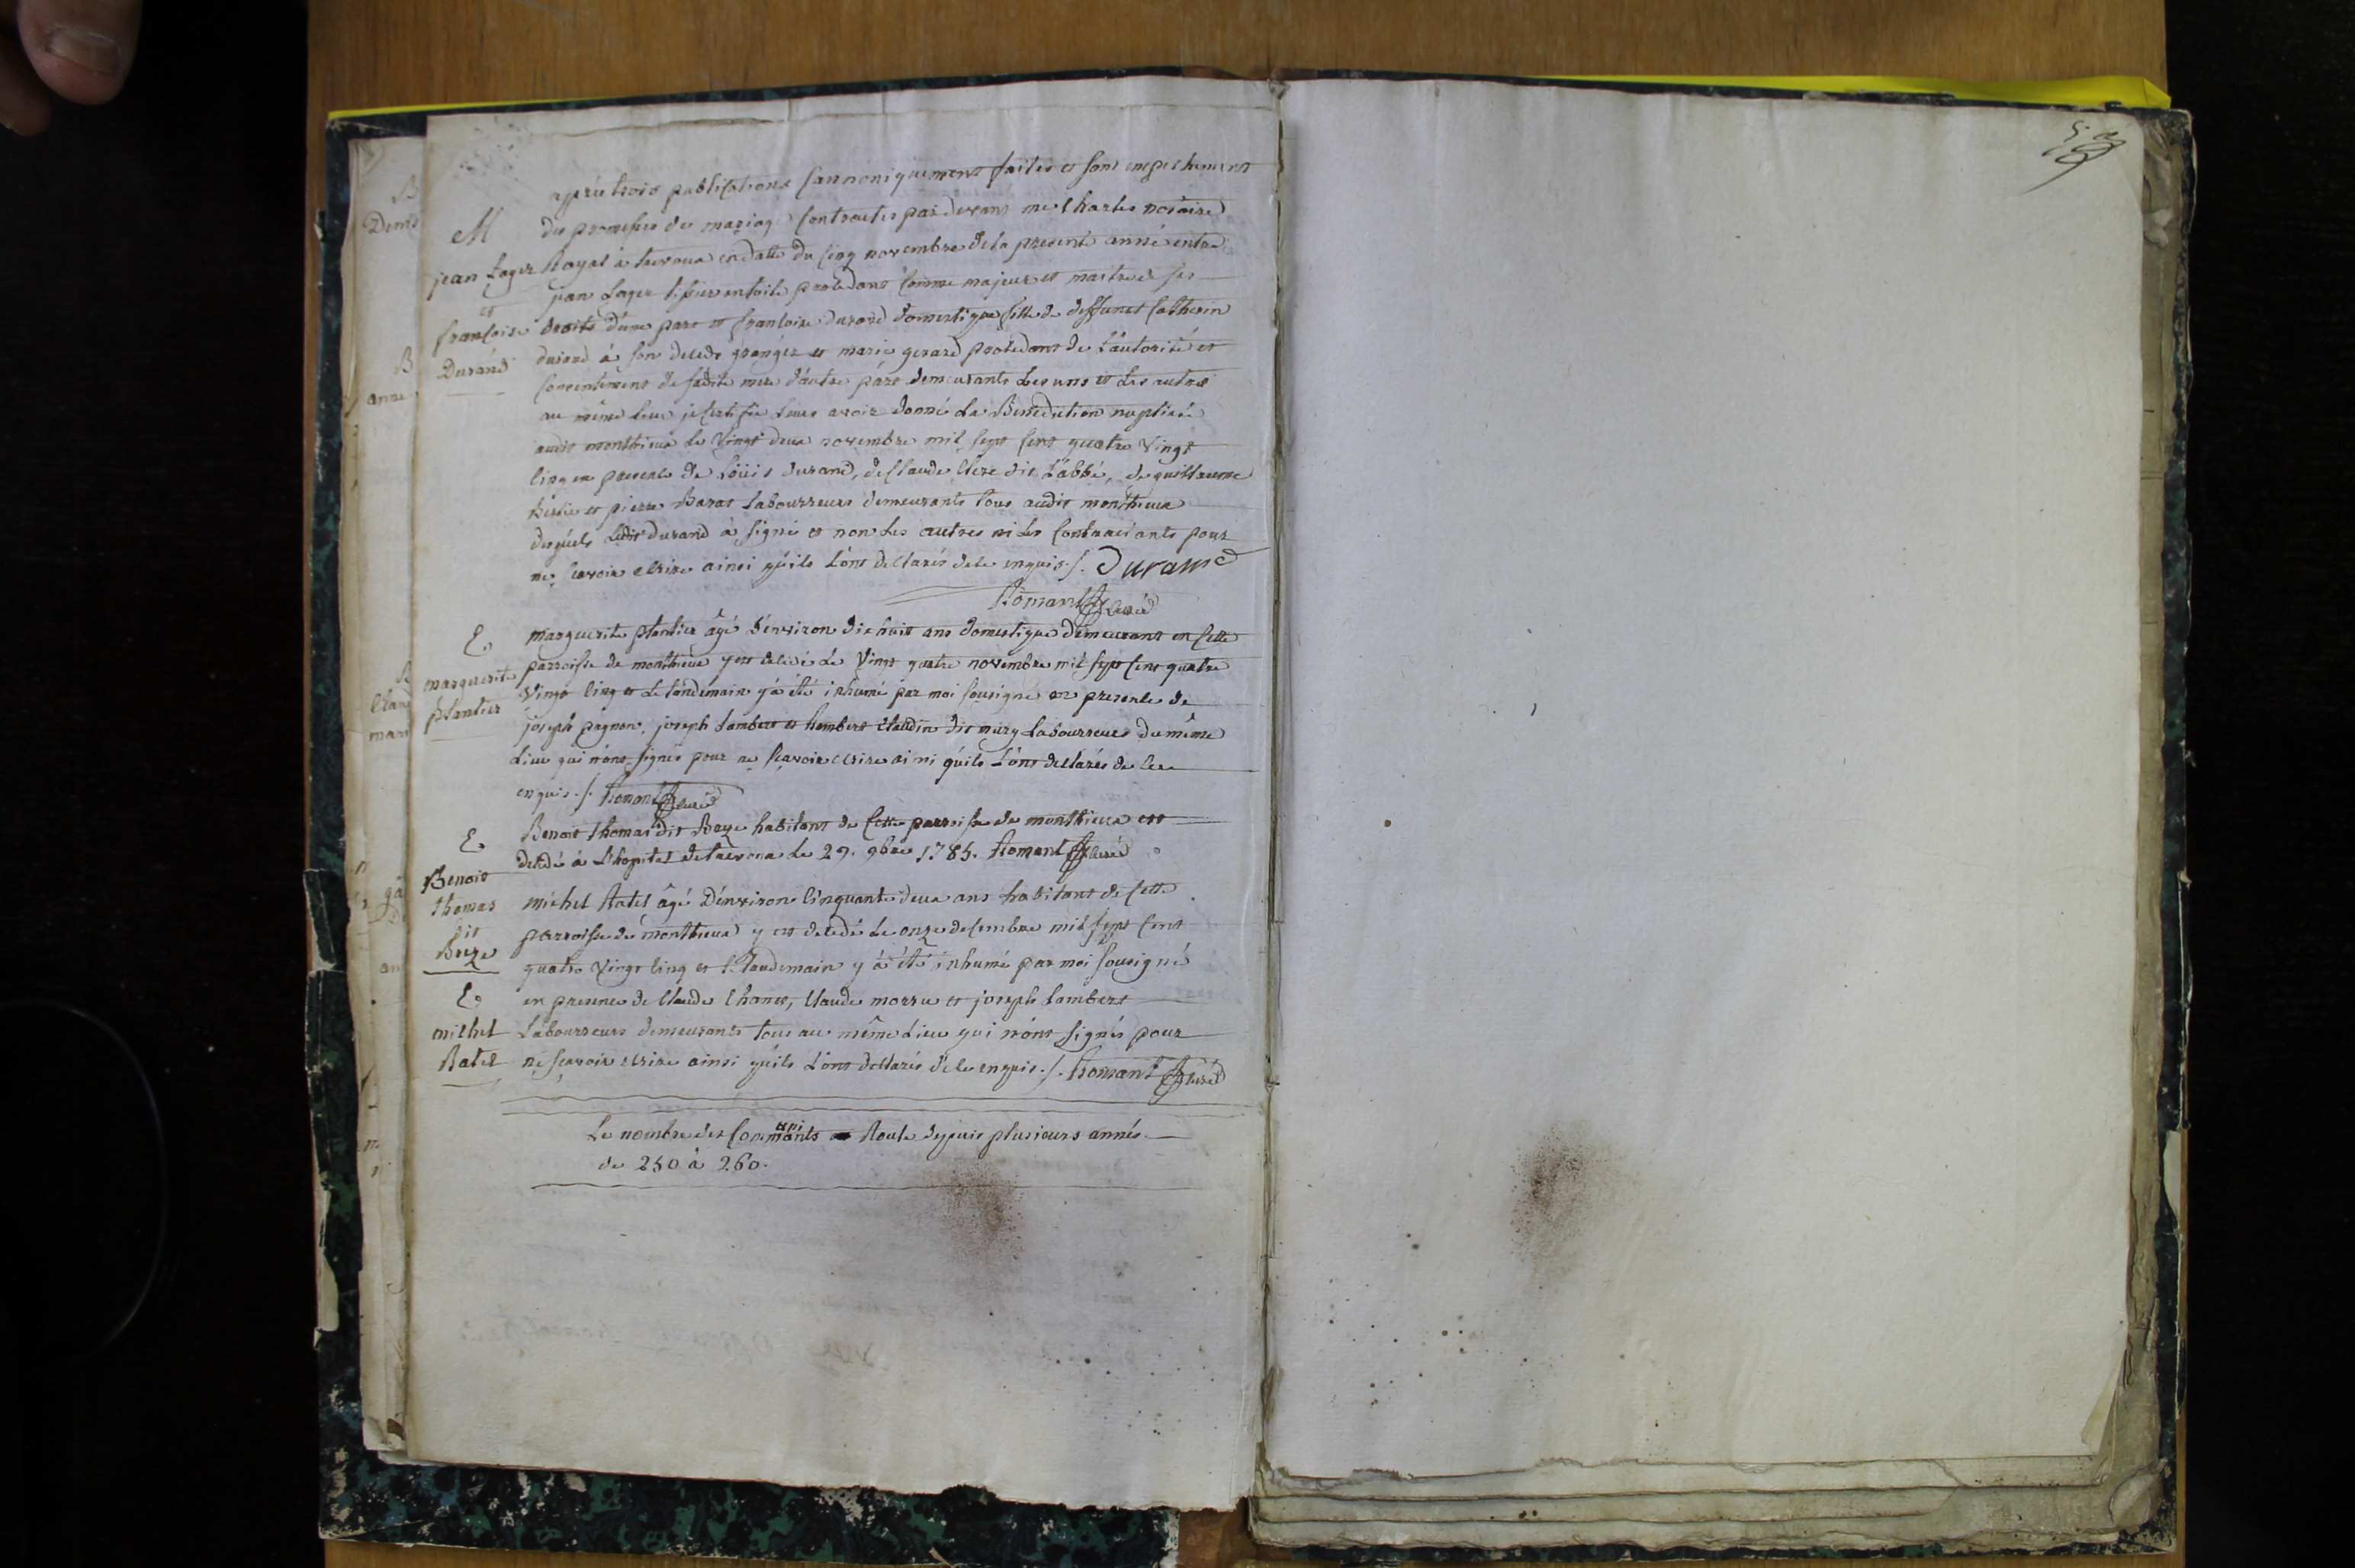 après trois publications cannoniquement faites et sans empechement
M
des promesses de mariage contractés pardevant me Charles notaire
Royal à trevoux en datte du cinq novembre de la presente année entre
jean Lager
jean Lager tissier en toile procedant comme majeur et maitre de ses
et
françoise
droits d'une part et francoise durand domestique fille de deffunct catherin
Durand
durand à son deceds granger et marie gerard procedant de l'autorité et
consentement de sadite mere d'autre part demeurants les uns et les autres
au même lieu je certifie leurs avoir donné la Benediction nuptiale
audit monthieux le vingt deux novembre mil sept cent quatre vingt
cinq en presence de Loüis durand, de claude clere dit L'abbé, de guillaume
et pierre Barat Labourreurs demeurants tous audit monthieux
desquels Ledit durand à signé et non les autres ni les contractants pour
ne scavoir ecrire ainsi qu'ils L'ont declarés de ce enquis ./. Durand
Romant curé
E.
marguerite plantier âgé d'environ dix huit ans domestique demeurant en cette
marguerite
plantier
parroisse de monthieux y est decedé le vingt quatre novembre mil sept cent quatre
vingt cinq et le landemain y à été inhumé par moi sousigné en presence de
joseph pagnon, joseph Lambert et humbert claudin dit mury Labourreurs du même
Lieu qui n'ont signés pour ne scavoir ecrire ainsi qu'ils L'ont declarés de ce
enquis ./. Romant curé
E.
Benoit
thomas
dit
Boize
Benoit thomas dit Boize habitant de cette parroisse de monthieux est
decedé à L'hopital de trevoux le 29. 9bre 1785. Romant curé
E.
michel
Ratel
michel Ratel âgé d'environ cinquante deux ans habitant de cette
parroisse de monthieux y est decedé le onze decembre mil sept cent
quatre vingt cinq et L'landemain y à été inhumé par moi sousigné
en presence de claude chanet, claude morre et joseph Lambert
Labourreurs demeurants tous au même Lieu qui n'ont signés pour
ne scavoir ecrire ainsi qu'ils L'ont declarés de ce enquis ./. Romant curé
Le nombre des communiants Roule depuis plusieurs années
de 250 à 260.